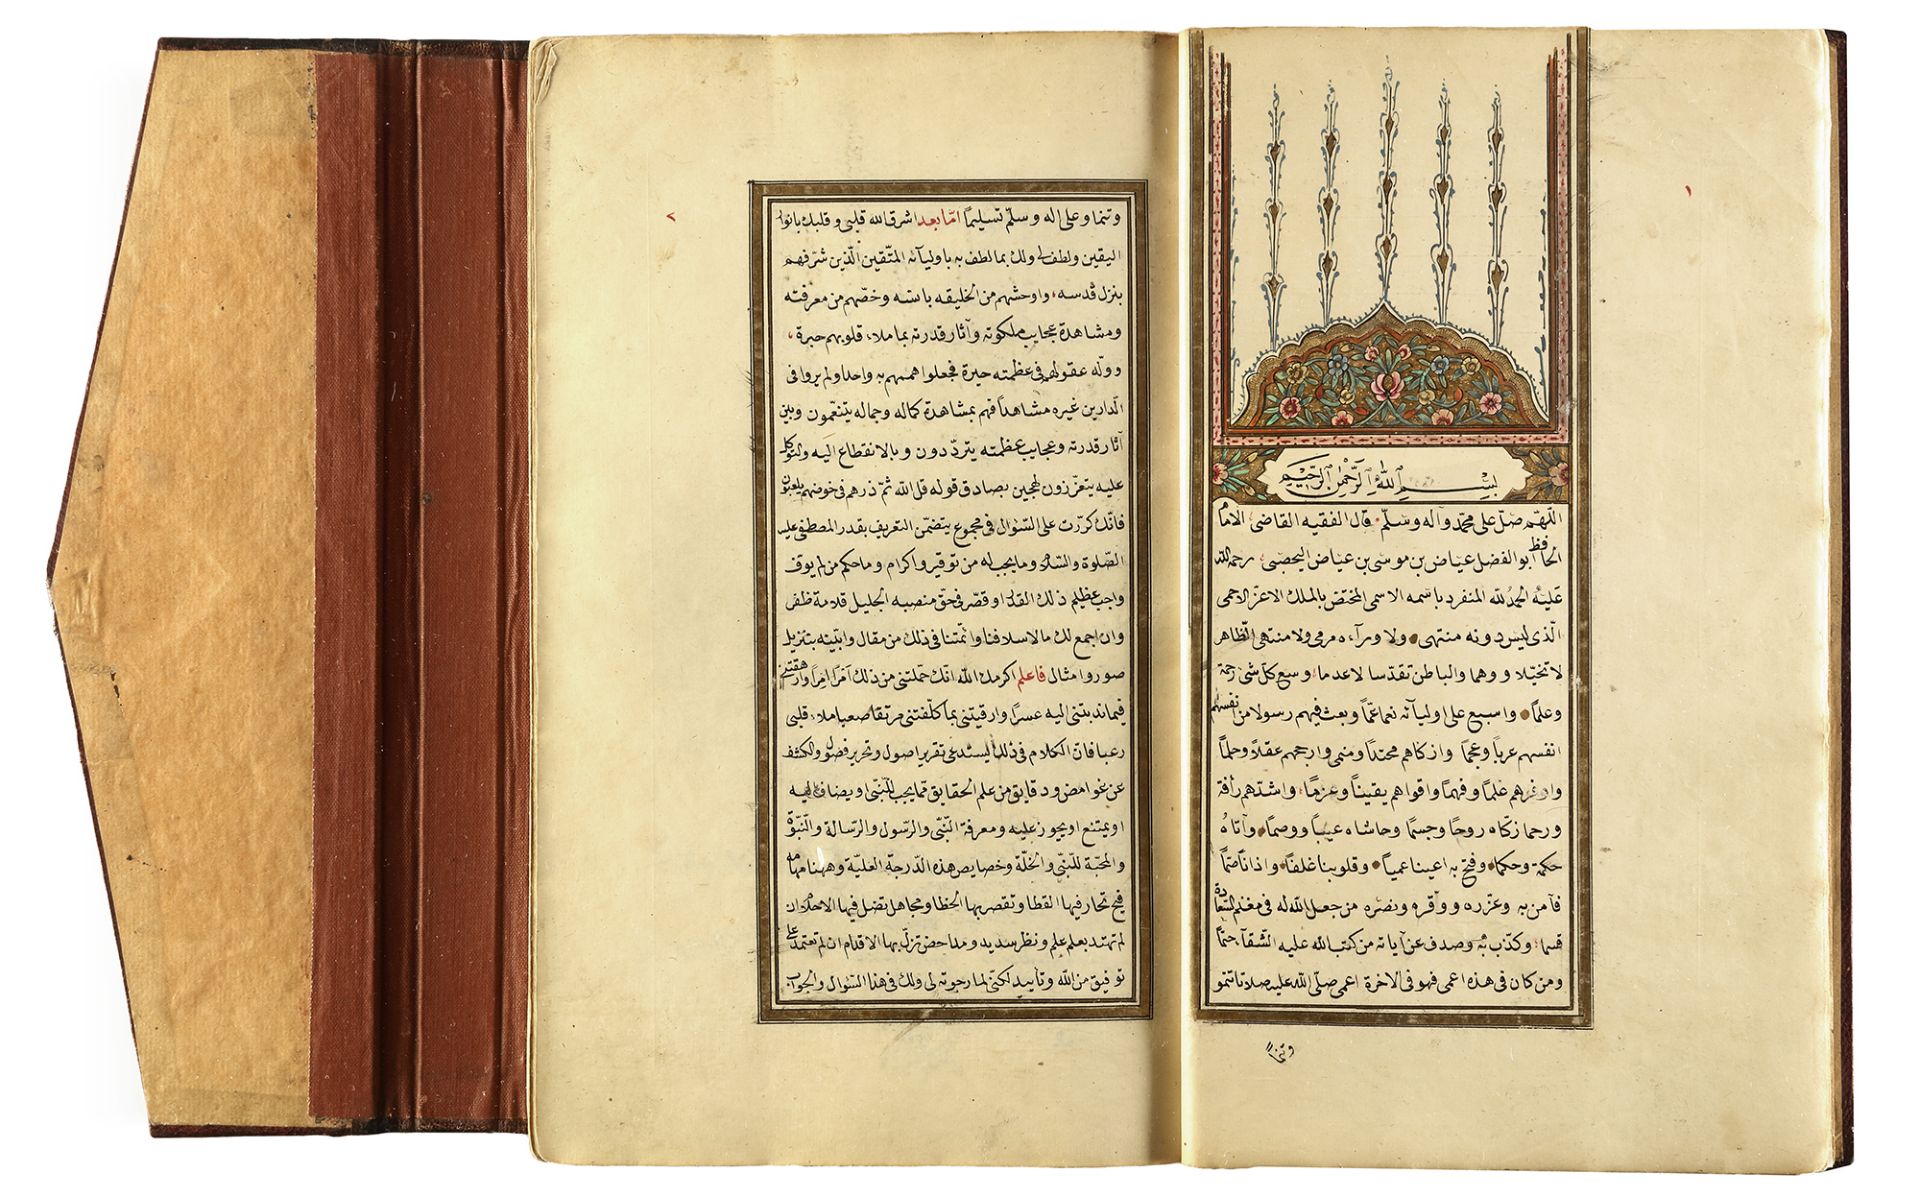 ١
بسم الله الرحمن الرحيم
اللهم صل على محمد وآله وسلم قال الفقيه القاضى الامام
الحافظ ابوالفضل عياض بن موسى بن عياض اليحصبى رحمة الله
عليه الحمد لله المنفرد باسمه الاسمى المختص بالملك الاعز الاحمى
الذى ليس دونه منتهى ولا ورآءه مرمى ولا منتهى الظاهر
لا تخيلا ووهما والباطن تقدسا لا عدما وسع كل شئ رحمة
وعلما واسبغ على اوليآئه نعما عما وبعث فيهم رسولا من انفسهم
انفسهم عربا وعجما وازكاهم محتدا ومنمى وارجحهم عقلا وحلما
واوفرهم علما وفهما واقواهم يقينا وعزما واشدهم رأفة
ورحما زكاه روحا وجسما وحاشاه عيبا ووصما وآتاه
حكمة وحكما وفتح به اعينا عميا وقلوبنا غلفا واذانا صما
فآمن به وعزره ووقره ونصره من جعل الله له فى مغنم السعادة
قسما وكذب به وصدف عن آياته من كتب الله عليه الشقآء حتما
ومن كان فى هذه اعمى فهو فى الاخرة اعمى صلى الله عليه صلاة تنمو
وتنما
٢
وتنما وعلى اله وسلم تسليما اما بعد اشرق الله قلبى وقلبك بانوار
اليقين ولطف لى ولك بما لطف به باوليآئه المتقين الذين شرفهم
بنزل قدسه واوحشهم من الخليقه بانسه وخصهم من معرفته
ومشاهدة عجايب ملكوته وآثار قدرته بما ملاء قلوبهم حبرة
ووله عقولهم فى عظمته حيرة فجعلوا هممهم به واحدا ولم يروا فى
الدارين غيره مشاهدا فهم بمشاهدة كماله وجماله يتنعمون وبين
آثار قدرته وعجايب عظمته يترددون وبالانقطاع اليه والتوكل
عليه يتعززون لهجين بصادق قوله قل الله ثم ذرهم فى خوضهم يلعبون
فانك كررت على السؤال فى مجموع يتضمن التعريف بقدر المصطفى عليه
الصلوة والسلام وما يجب له من توقير واكرام وما حكم من لم يوف
واجب عظيم ذلك القدر او قصر فى حق منصبه الجليل قلامة ظفر
وان اجمع لك ما لاسلافنا وائمتنا فى ذلك من مقال وابينه بتنزيل
صور وامثال فاعلم اكرمك الله انك حملتنى من ذلك امرا امرا وارهقتنى
فيما ندبتنى اليه عسرا وارقيتنى بما كلفتنى مرتقا صعبا ملاء قلبى
رعبا فان الكلام فى ذلك يستدعى تقرير اصول وتحرير فصول والكشف
عن غوامض ودقايق من علم الحقايق مما يجب للنبى او يضاف اليه
او يمتنع او يجوز عليه ومعرفة النبى والرسول والرسالة والنبوة
والمحبة للنبى والخلة وخصايص هذه الدرجة العلية وههنا مهامه
فيح تحار فيها القطا وتقصر بها الخطا ومجاهل تضل فيها الاحلام ان
لم تهتد بعلم علم ونظر سديد ومداحض تزل بها الاقدام ان لم تعتمد على
توفيق من الله وتأييد لكنى لما رجوته لى ولك فى هذا السئوال والجواب